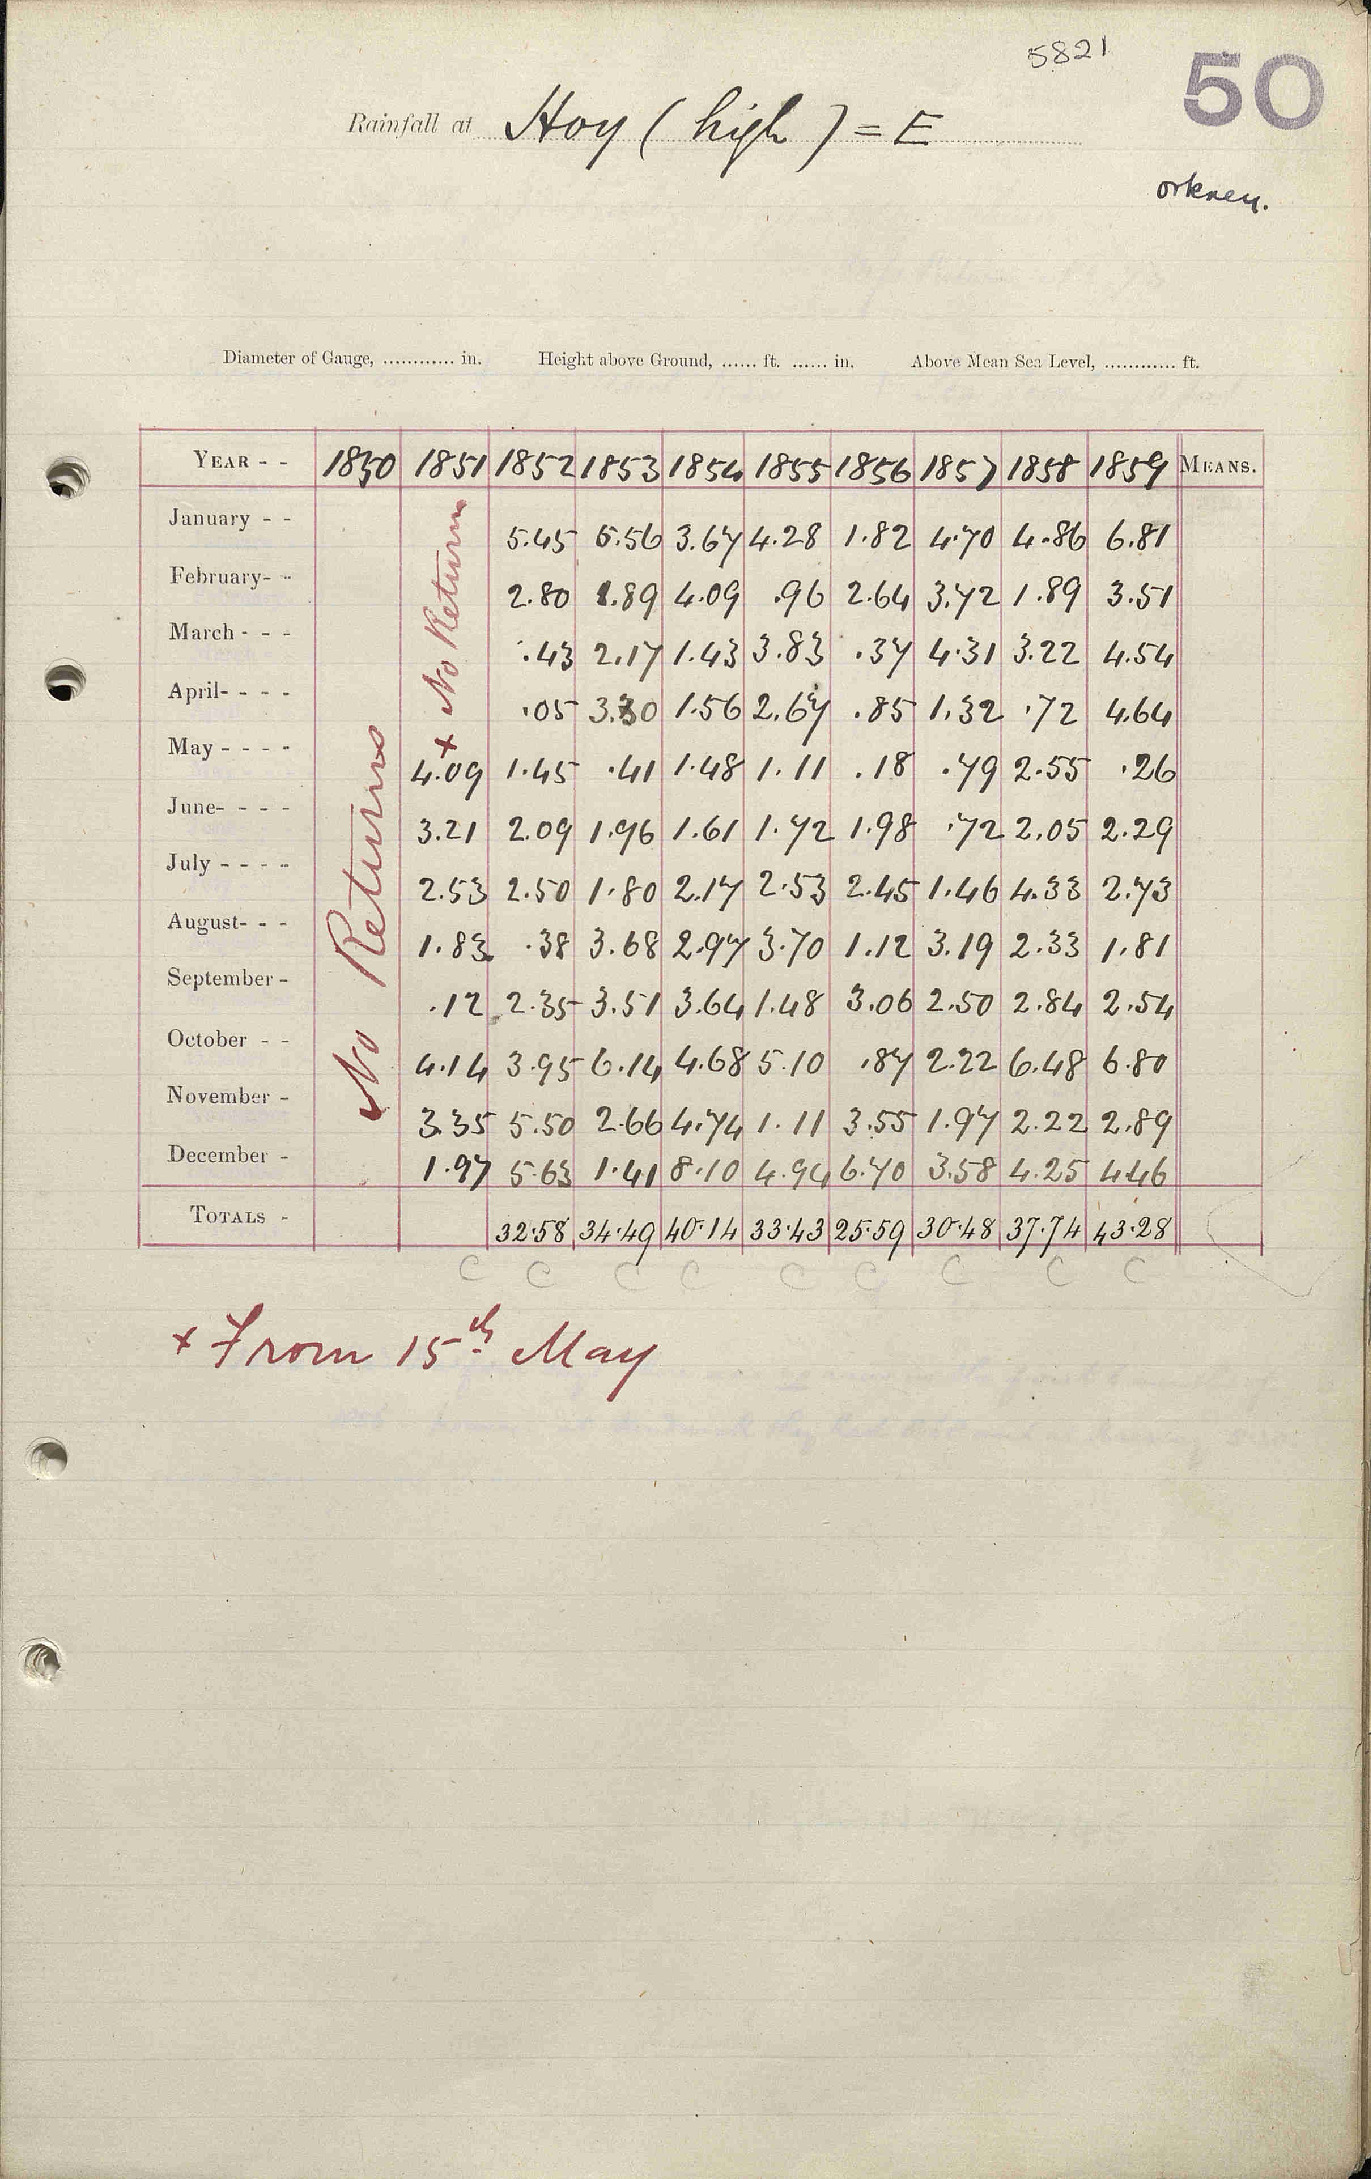 5821
50
Rainfall at Hoy (high) = E
orkney.
Diameter of Gauge, ............ in. Height above Ground, ...... ft. ...... in. Above Mean Sea Level, ............ ft.
YEAR - - 1850 1851 1852 1853 1854 1855 1856 1857 1858 1859 MEANS.
January - - 5.45 5.56 3.67 4.28 1.82 4.70 4.86 6.81
February- - 2.80 1.89 4.09 .96 2.64 3.72 1.89 3.51
March - - - .43 2.17 1.43 3.83 .37 4.31 3.22 4.54
April- - - - .05 3.30 1.56 2.67 .85 1.32 .72 4.64
May - - - - + 4.09 1.45 .41 1.48 1.11 .18 .79 2.55 .26
June- - - - 3.21 2.09 1.96 1.61 1.72 1.98 .72 2.05 2.29
July - - - - 2.53 2.50 1.80 2.17 2.53 2.45 1.46 4.33 2.73
August- - - 1.83 .38 3.68 2.97 3.70 1.12 3.19 2.33 1.81
September - .12 2.35 3.51 3.64 1.48 3.06 2.50 2.84 2.54
October - - 4.14 3.95 6.14 4.68 5.10 .87 2.22 6.48 6.80
November - 3.35 5.50 2.66 4.74 1.11 3.55 1.97 2.22 2.89
December - 1.97 5.63 1.41 8.10 4.94 6.70 3.58 4.25 4.46
TOTALS - 32.58 34.49 40.14 33.43 25.59 30.48 37.74 43.28
No Returns
No Return
C C C C C C C C C
+ From 15th May